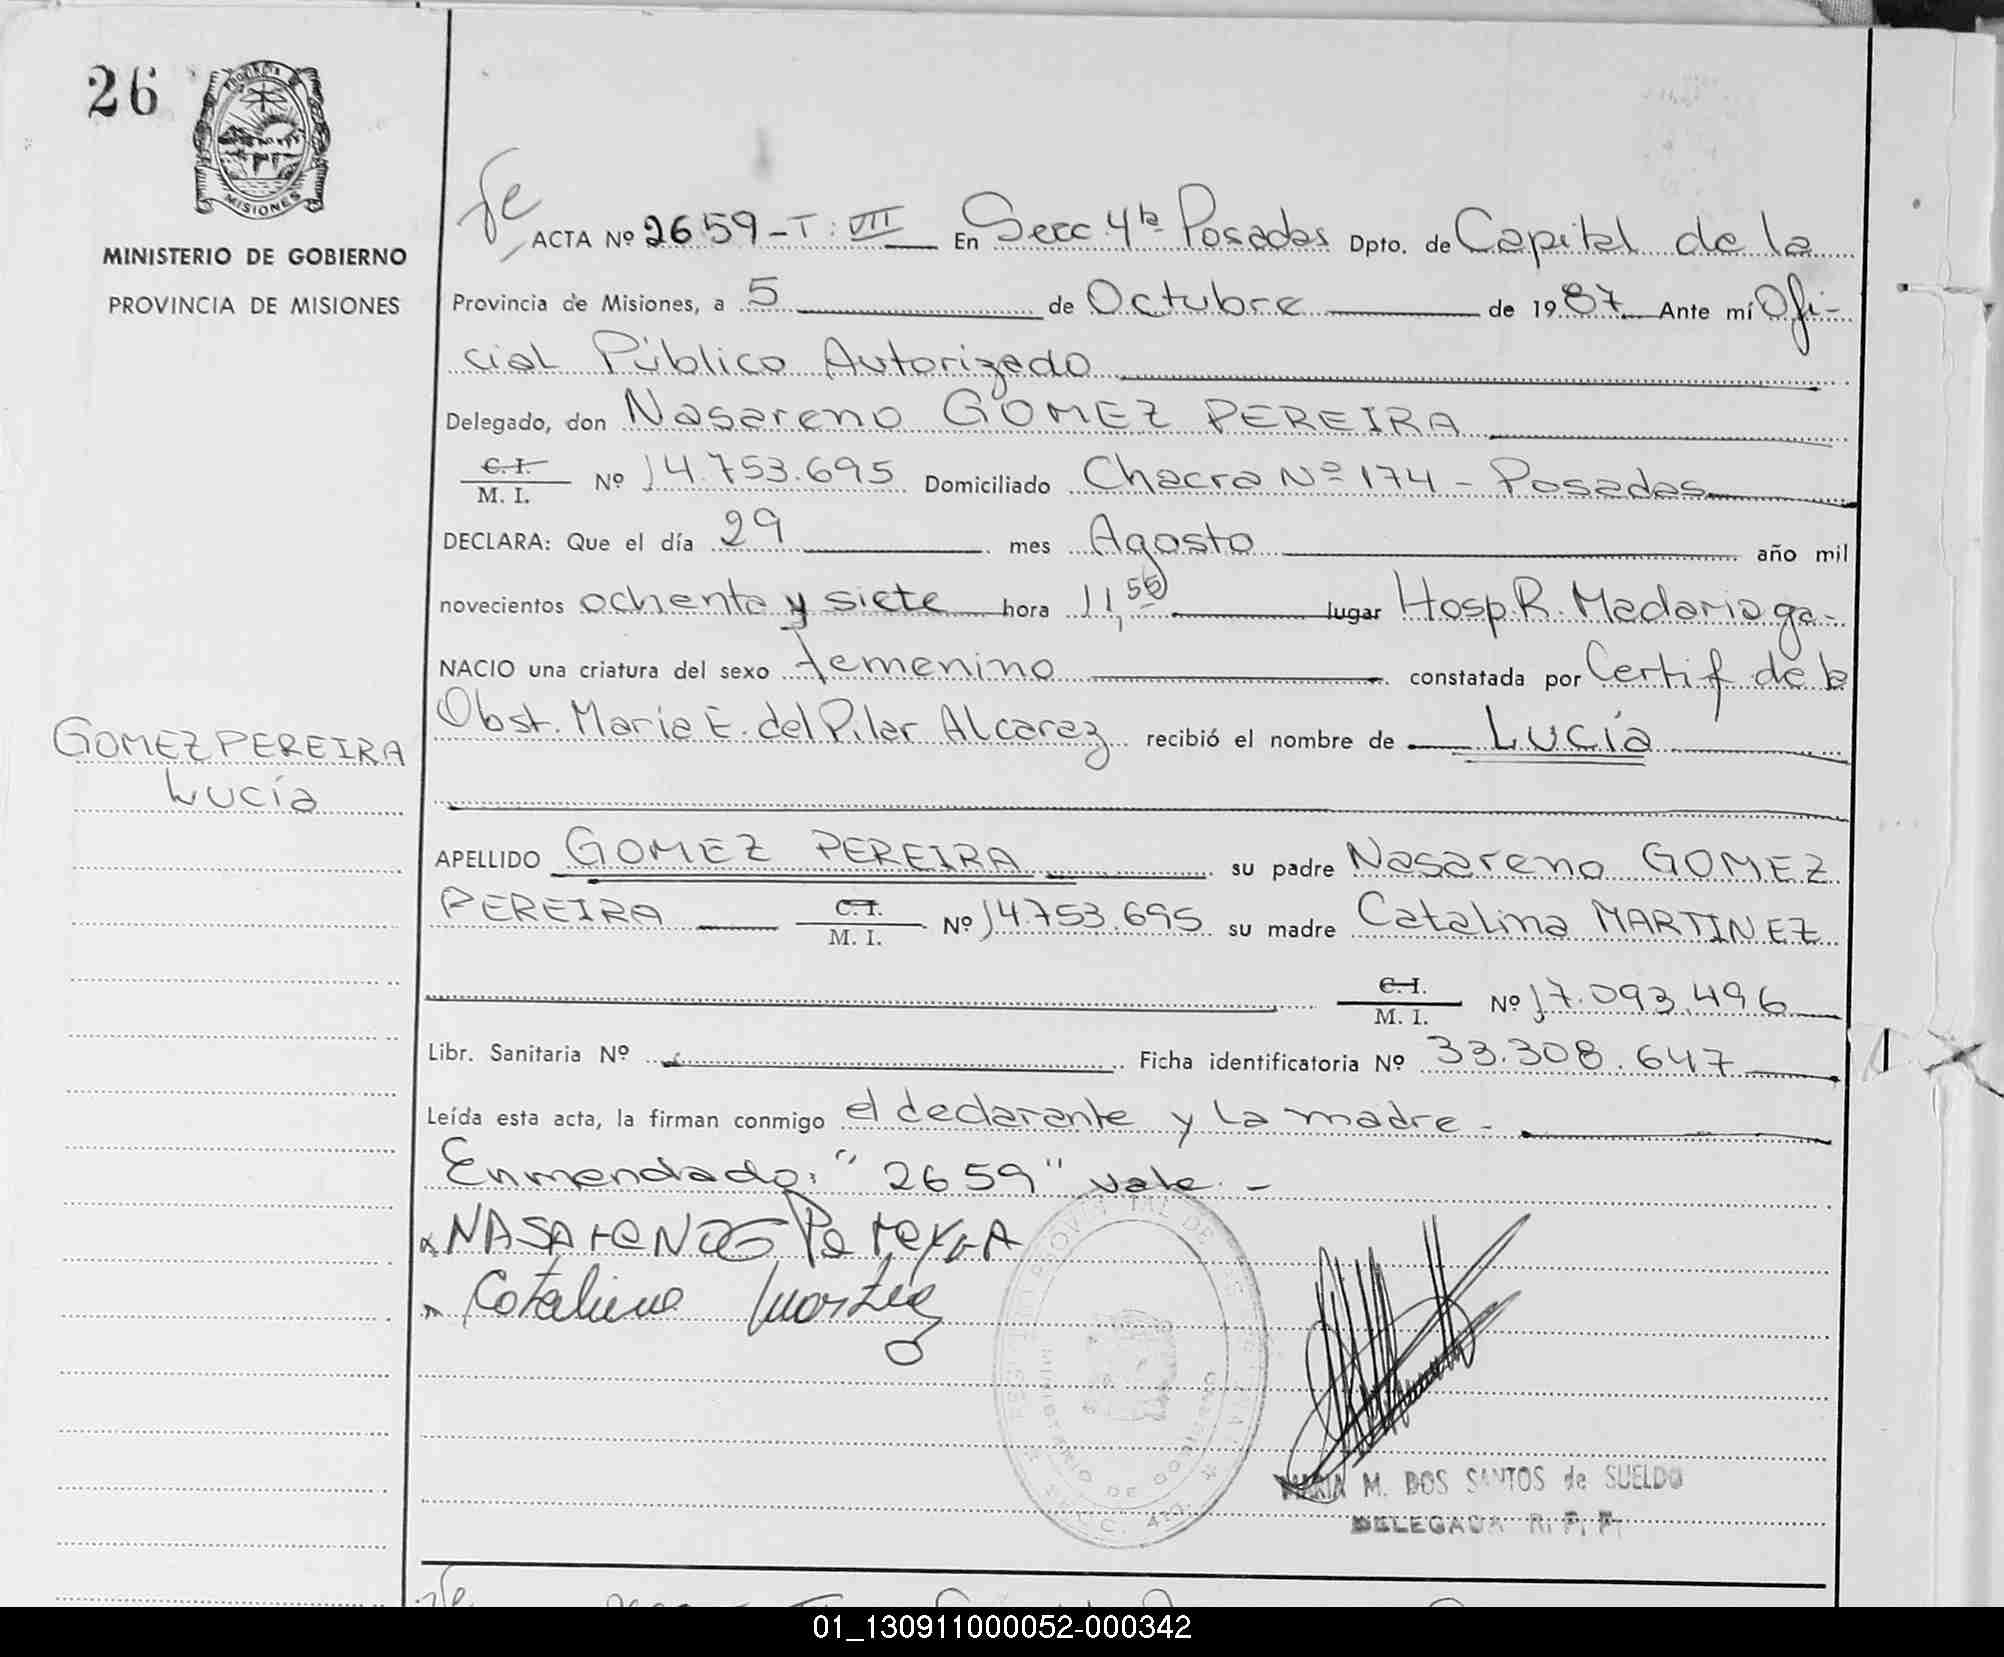 26
PROVINCIA DE
MISIONES
MINISTERIO DE GOBIERNO
PROVINCIA DE MISIONES
ACTA Nº 2659-T: VII En Secc 4ta Posadas Dpto. de Capital de la
Provincia de Misiones, a 5 de Octubre de 1987 Ante mí Ofi-
cial Público Autorizado
Delegado, don Nasareno GOMEZ PEREIRA
C. I.
M. I. Nº 14.753.695 Domiciliado Chacra Nº 174 - Posadas
DECLARA: Que el día 29 mes Agosto año mil
novecientos ochenta y siete hora 11,55 lugar Hosp. R. Madariaga-
NACIO una criatura del sexo femenino constatada por Certif de la
Obst. María E. del Pilar Alcaraz recibió el nombre de Lucía
GOMEZ PEREIRA
Lucía
APELLIDO GOMEZ PEREIRA su padre Nasareno GOMEZ
PEREIRA C. I. M. I. Nº 14.753.695 su madre Catalina MARTINEZ
C. I.
M. I. Nº 17.093.496
Libr. Sanitaria Nº Ficha identificatoria Nº 33.308.647
Leída esta acta, la firman conmigo el declarante y la madre -
Enmendado: "2659" vale. -
NASAreNO G PereyrA
Catalina Martinez
MARIA M. DOS SANTOS de SUELDO
DELEGADA R. P. P.
01_130911000052-000342